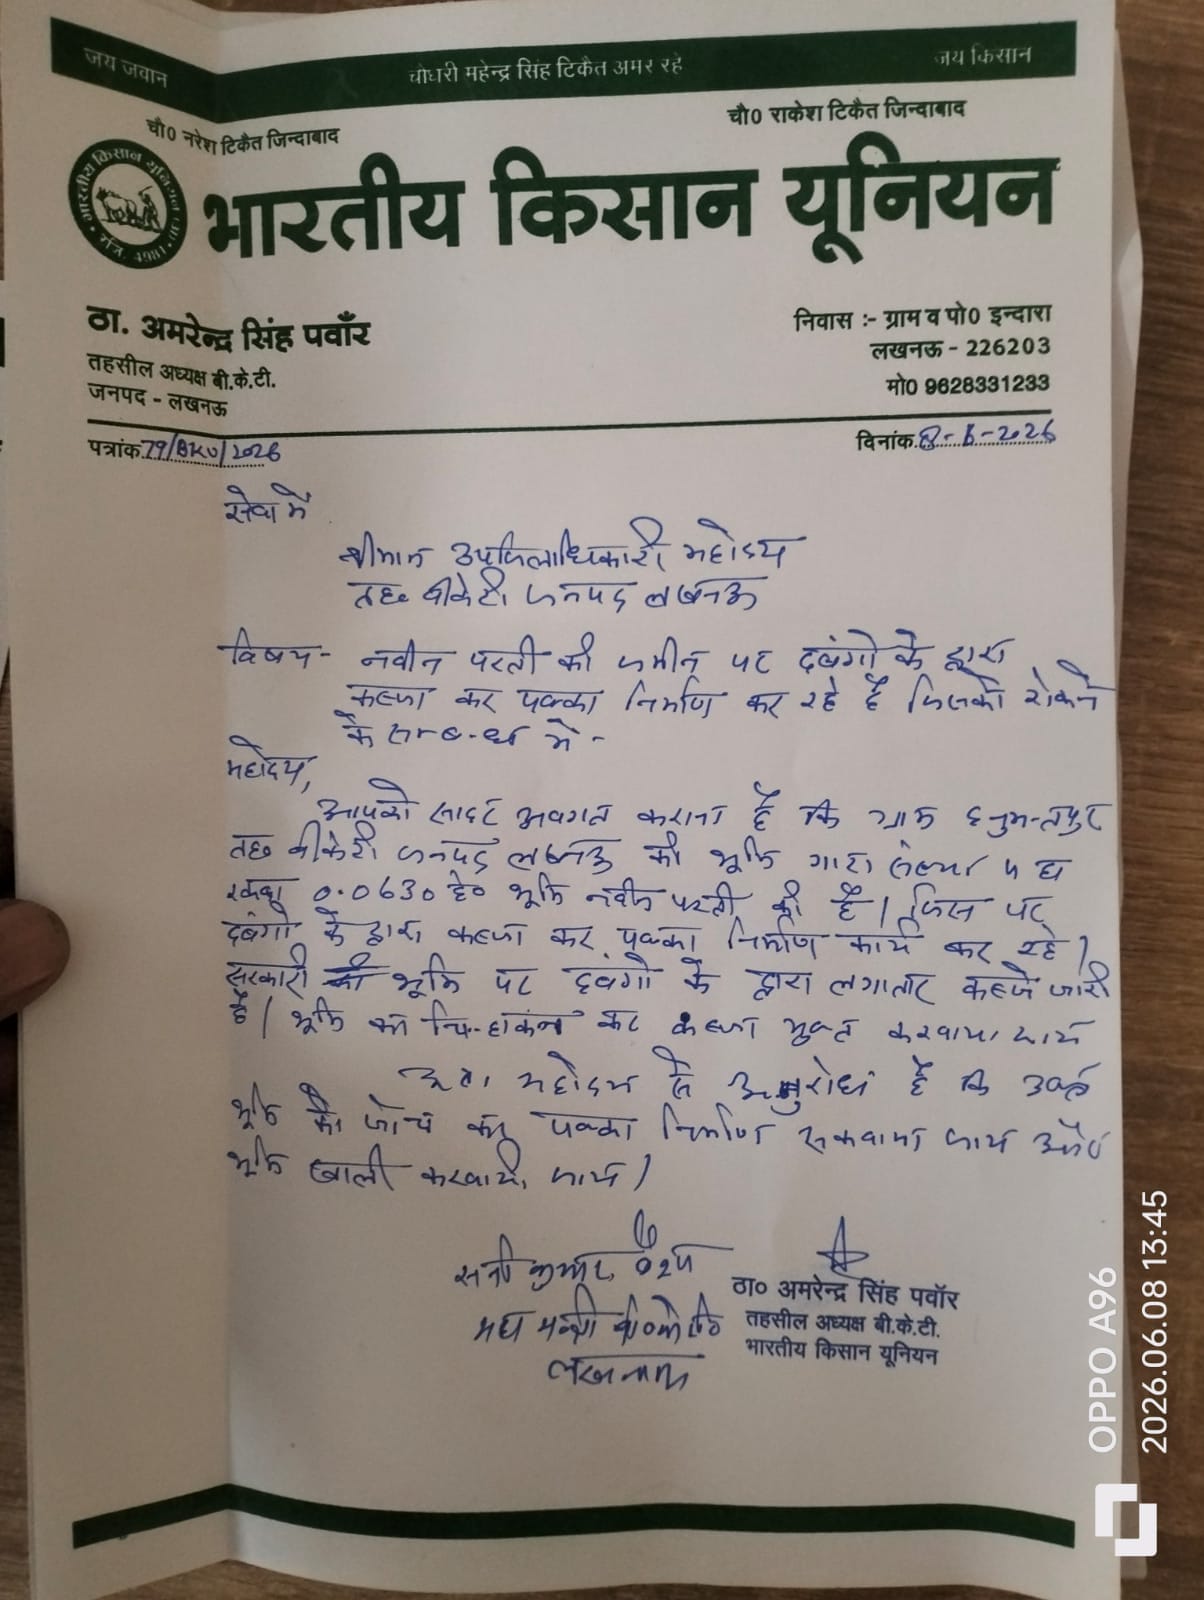 जय जवान
चौधरी महेन्द्र सिंह टिकैत अमर रहे
जय किसान
चौ0 नरेश टिकैत जिन्दाबाद
चौ0 राकेश टिकैत जिन्दाबाद
भारतीय किसान यूनियन
रजि. 4981
भारतीय किसान यूनियन
ठा. अमरेन्द्र सिंह पवाँर
तहसील अध्यक्ष बी.के.टी.
जनपद - लखनऊ
निवास :- ग्राम व पो0 इन्दारा
लखनऊ - 226203
मो0 9628331233
पत्रांक 79/BKU/2026
दिनांक 8-6-2026
सेवा में
श्रीमान उपजिलाधिकारी महोदय
तह० बीकेटी जनपद लखनऊ
विषय- नवीन परती की जमीन पर दबंगो के द्वारा
कब्जा कर पक्का निर्माण कर रहे है जिसको रोकने
के सम्बन्ध में -
महोदय,
आपको सादर अवगत कराना है कि ग्राम हनुमन्तपुर
तह० बीकेटी जनपद लखनऊ की भूमि गाटा संख्या
रकबा 0.0630 हे० भूमि नवीन परती की है। जिस पर
दबंगो के द्वारा कब्जा कर पक्का निर्माण कार्य कर रहे।
सरकारी भूमि पर दबंगो के द्वारा लगातार कब्जे जारी
है। भूमि का चिन्हाकन कर कब्जा मुक्त करवाया जाय
अतः महोदय से अनुरोध है कि उक्त
भूमि की जांच कर पक्का निर्माण रूकवाया जाय और
भूमि खाली करवायी जाय।
कुमार
लखनऊ
ठा० अमरेन्द्र सिंह पवाँर
तहसील अध्यक्ष बी.के.टी.
भारतीय किसान यूनियन
OPPO A96
2026.06.08 13:45